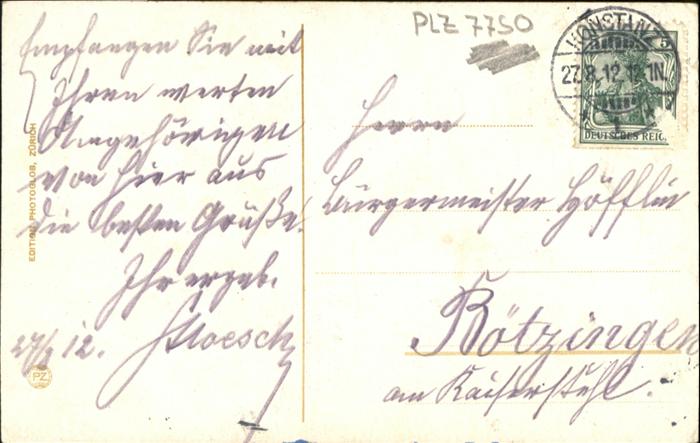 Empfangen Sie mit
Ihren werten
Angehörigen
von hier aus
die besten Grüße.
Ihr ergeb.
27/8 12.
EDITION PHOTOGLOB, ZÜRICH
PZ
PLZ 7750
KONSTANZ
27.8.12.12-1N.
5
DEUTSCHES REICH
Herrn
Bürgermeister Höfflin
Bötzingen
am Kaiserstuhl.